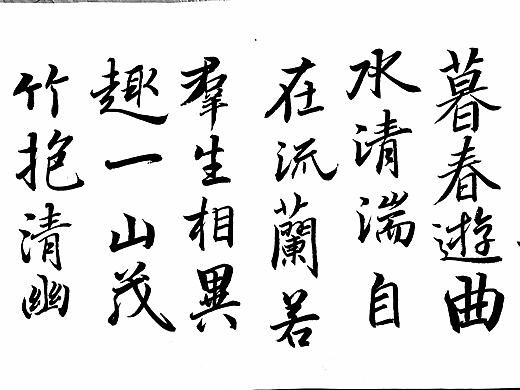 暮春遊曲
水清湍自
在流蘭若
羣生相異
趣一山茂
竹抱清幽